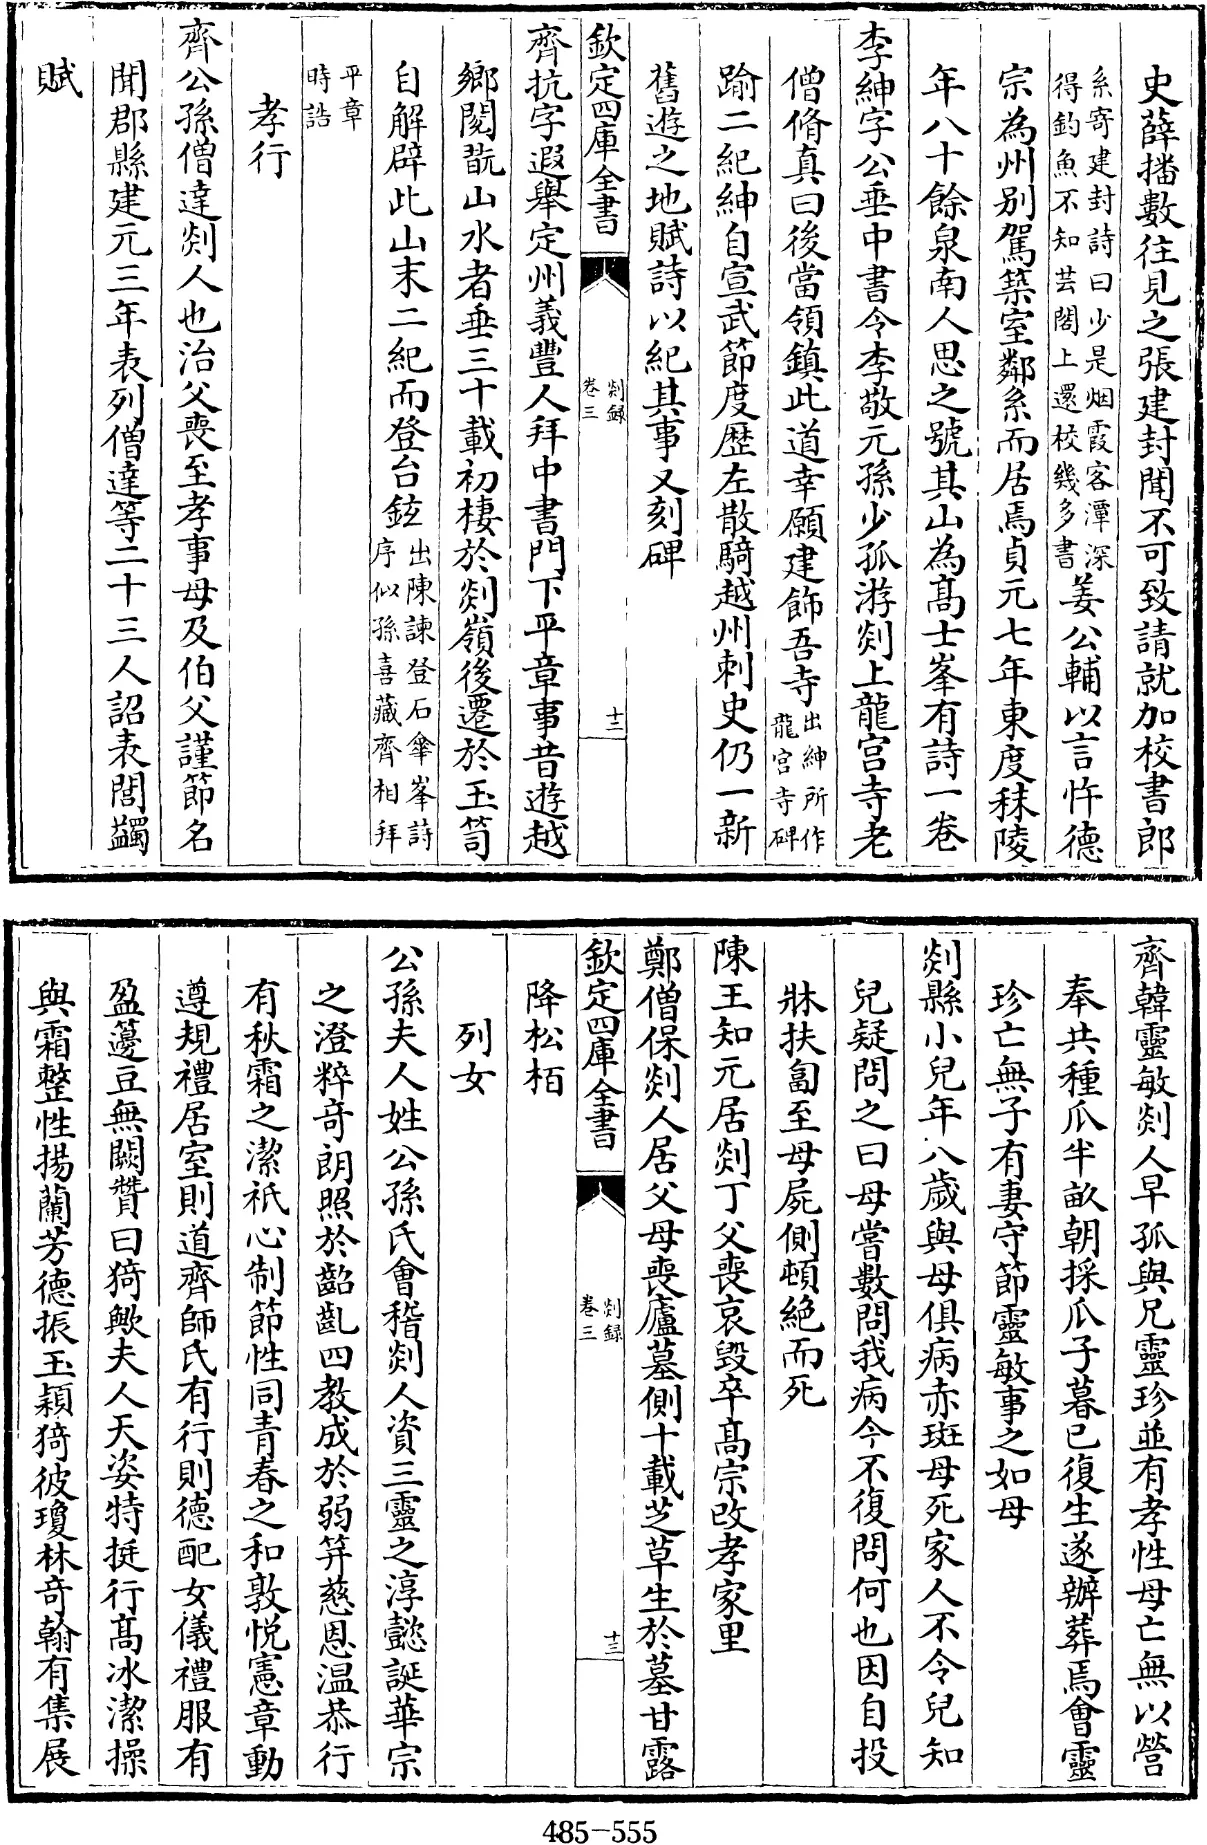 史薛播數往見之張建封聞不可致請就加校書郎
系寄建封詩曰少是烟霞客潭深
得釣魚不知芸閣上還校幾多書
姜公輔以言忤德
宗為州别駕築室鄰系而居焉貞元七年東度秣陵
年八十餘泉南人思之號其山為髙士峯有詩一卷
李紳字公垂中書令李敬元孫少孤游剡上龍宫寺老
僧脩真曰後當領鎮此道幸願建飾吾寺
出紳所作
龍宫寺碑
踰二紀紳自宣武節度歴左散騎越州刺史仍一新
舊遊之地賦詩以紀其事又刻碑
欽定四庫全書
剡録
卷三
十二
齊抗字遐舉定州義豐人拜中書門下平章事昔遊越
鄉閲翫山水者垂三十載初棲於剡嶺後遷於玉笥
自解辟此山末二紀而登台鉉
出陳諫登石傘峯詩
序似孫喜藏齊相拜
平章
時誥
孝行
齊公孫僧達剡人也治父喪至孝事母及伯父謹節名
聞郡縣建元三年表列僧達等二十三人詔表閭蠲
賦
齊韓靈敏剡人早孤與兄靈珍並有孝性母亡無以營
奉共種瓜半畝朝採瓜子暮已復生遂辦葬焉會靈
珍亡無子有妻守節靈敏事之如母
剡縣小兒年八歲與母俱病赤斑母死家人不令兒知
兒疑問之曰母嘗數問我病今不復問何也因自投
牀扶匐至母屍側頓絶而死
陳王知元居剡丁父喪哀毀卒髙宗改孝家里
鄭僧保剡人居父母喪廬墓側十載芝草生於墓甘露
欽定四庫全書
剡録
卷三
十三
降松栢
列女
公孫夫人姓公孫氏會稽剡人資三靈之淳懿誕華宗
之澄粹竒朗照於齠齓四教成於弱笄慈恩温恭行
有秋霜之潔祇心制節性同青春之和敦悦憲章動
遵規禮居室則道齊師氏有行則德配女儀禮服有
盈籩豆無闕贊曰猗歟夫人天姿特挺行髙冰潔操
與霜整性揚蘭芳德振玉穎猗彼瓊林竒翰有集展
485-555